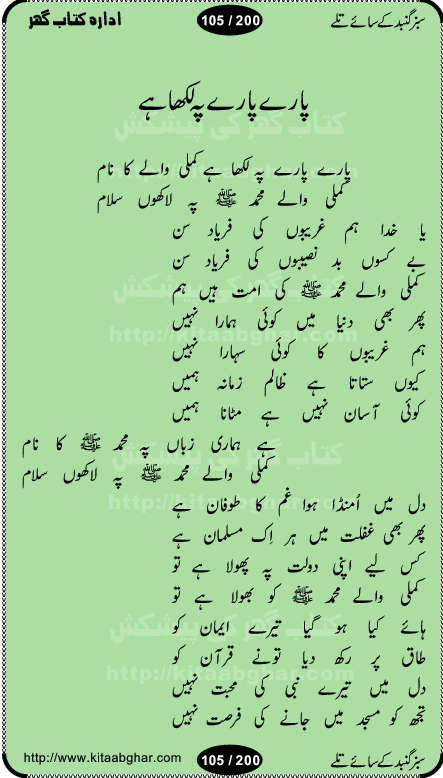 سبز گنبد کے سائے تلے 105 / 200 ادارہ کتاب گھر
پارے پارے پہ لکھا ہے
پارے پارے پہ لکھا ہے کملی والے کا نام
کملی والے محمد ﷺ پہ لاکھوں سلام
یا خدا ہم غریبوں کی فریاد سن
بے کسوں بد نصیبوں کی فریاد سن
کملی والے محمد ﷺ کی امت ہیں ہم
پھر بھی دنیا میں کوئی ہمارا نہیں
ہم غریبوں کا کوئی سہارا نہیں
کیوں ستاتا ہے ظالم زمانہ ہمیں
کوئی آسان نہیں ہے مٹانا ہمیں
ہے ہماری زباں پہ محمد ﷺ کا نام
کملی والے محمد ﷺ پہ لاکھوں سلام
دل میں اُمنڈا ہوا غم کا طوفان ہے
پھر بھی غفلت میں ہر اِک مسلمان ہے
کس لیے اپنی دولت پہ پھولا ہے تو
کملی والے محمد ﷺ کو بھولا ہے تو
ہائے کیا ہو گیا تیرے ایمان کو
طاق پر رکھ دیا تونے قرآن کو
دل میں تیرے نبی کی محبت نہیں
تجھ کو مسجد میں جانے کی فرصت نہیں
سبز گنبد کے سائے تلے 105 / 200 http://www.kitaabghar.com
کتاب گھر کی پیشکش
http://kitaabghar.com
کتاب گھر کی پیشکش
http://kitaabghar.com
کتاب گھر کی پیشکش
http://kitaabghar.com
کتاب گھر کی پیشکش
http://kitaabghar.com